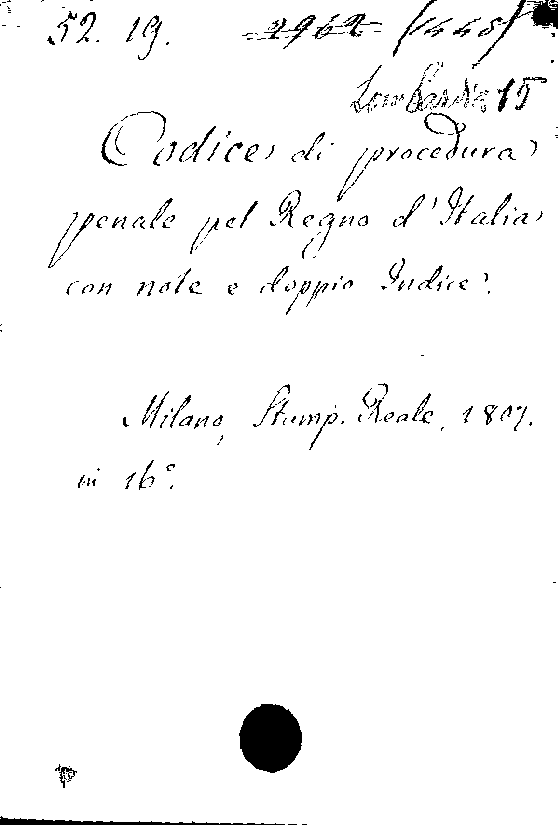 52. 19. 2962 (1445)
Lombardia 15
Codice di procedura
penale pel Regno d'Italia
con note e doppio Indice.
Milano, Stamp. Reale, 1807.
in 16°.